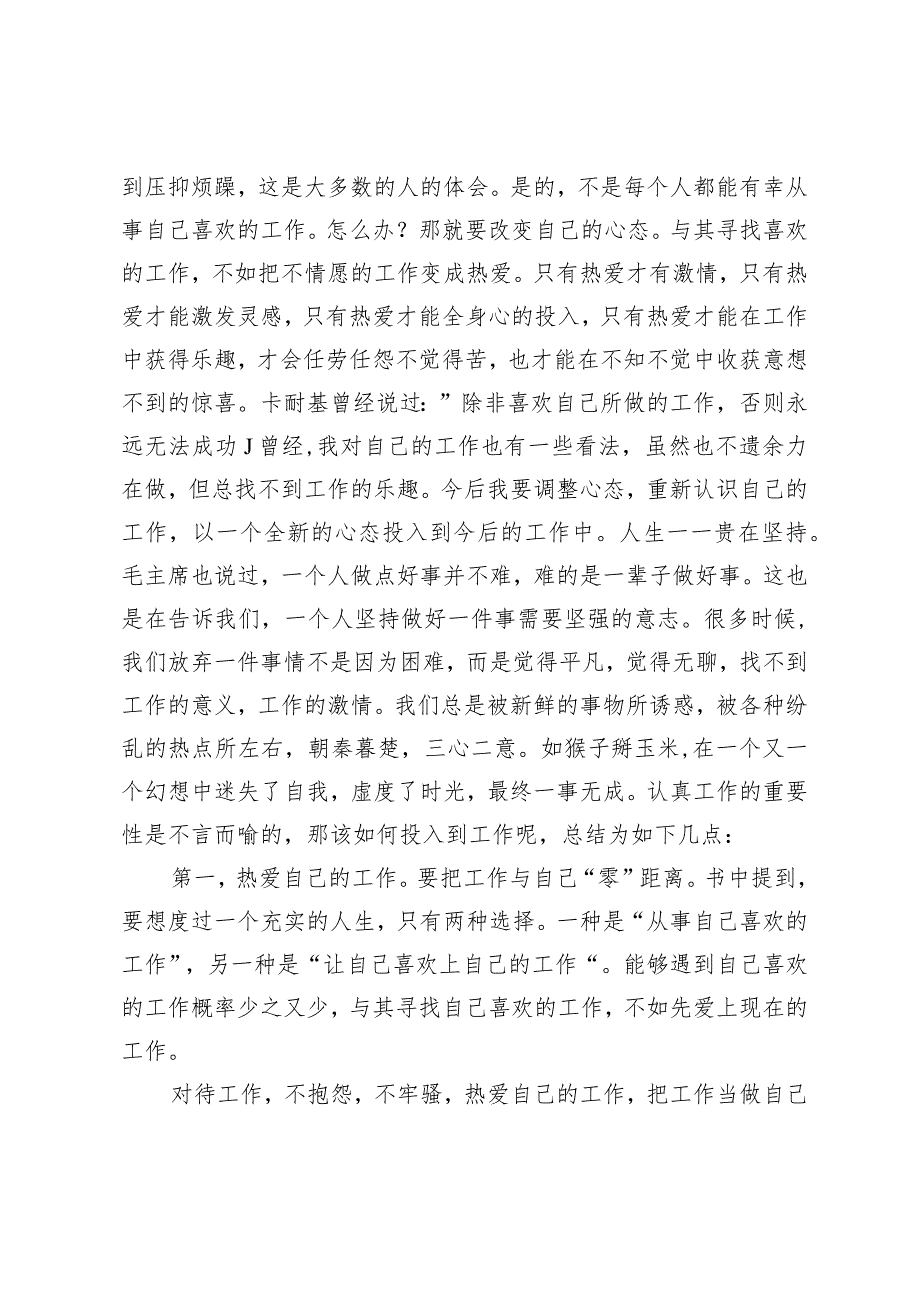 到压抑烦躁，这是大多数的人的体会。是的，不是每个人都能有幸从
事自己喜欢的工作。怎么办？那就要改变自己的心态。与其寻找喜欢
的工作，不如把不情愿的工作变成热爱。只有热爱才有激情，只有热
爱才能激发灵感，只有热爱才能全身心的投入，只有热爱才能在工作
中获得乐趣，才会任劳任怨不觉得苦，也才能在不知不觉中收获意想
不到的惊喜。卡耐基曾经说过：”除非喜欢自己所做的工作，否则永
远无法成功J曾经,我对自己的工作也有一些看法，虽然也不遗余力
在做，但总找不到工作的乐趣。今后我要调整心态，重新认识自己的
工作，以一个全新的心态投入到今后的工作中。人生一一贵在坚持。
毛主席也说过，一个人做点好事并不难，难的是一辈子做好事。这也
是在告诉我们，一个人坚持做好一件事需要坚强的意志。很多时候,
我们放弃一件事情不是因为困难，而是觉得平凡，觉得无聊，找不到
工作的意义，工作的激情。我们总是被新鲜的事物所诱惑，被各种纷
乱的热点所左右，朝秦暮楚，三心二意。如猴子掰玉米,在一个又一
个幻想中迷失了自我，虚度了时光，最终一事无成。认真工作的重要
性是不言而喻的，那该如何投入到工作呢，总结为如下几点：
第一，热爱自己的工作。要把工作与自己“零”距离。书中提到，
要想度过一个充实的人生，只有两种选择。一种是“从事自己喜欢的
工作”，另一种是“让自己喜欢上自己的工作“。能够遇到自己喜欢
的工作概率少之又少，与其寻找自己喜欢的工作，不如先爱上现在的
工作。
对待工作，不抱怨，不牢骚，热爱自己的工作，把工作当做自己